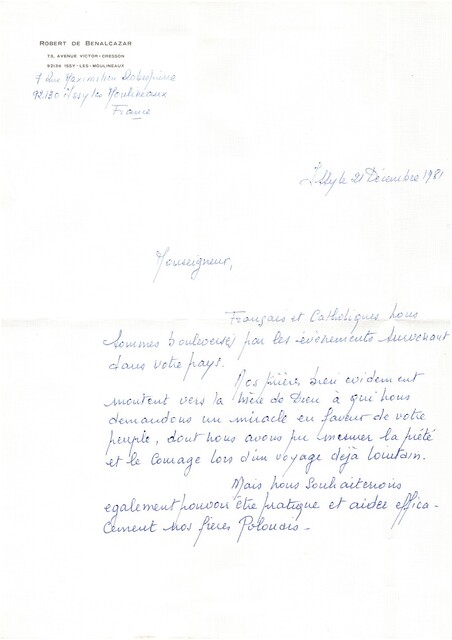 ROBERT DE BENALCAZAR
73, AVENUE VICTOR-CRESSON
92130 ISSY-LES-MOULINEAUX
7 Rue Maximilien Robespierre
92130 Issy les Moulineaux
France
Issy le 21 Décembre 1981
Monseigneur,
Français et Catholiques nous
sommes bouleversés par les évènements survenant
dans votre pays.
Nos prières bien evidement
montent vers la Mère de Dieu à qui nous
demandons un miracle en faveur de votre
peuple, dont nous avons pu mesurer la piété
et le courage lors d'un voyage déjà lointain.
Mais nous souhaiterions
egalement pouvoir être pratique et aider effica-
cement nos frères Polonais -